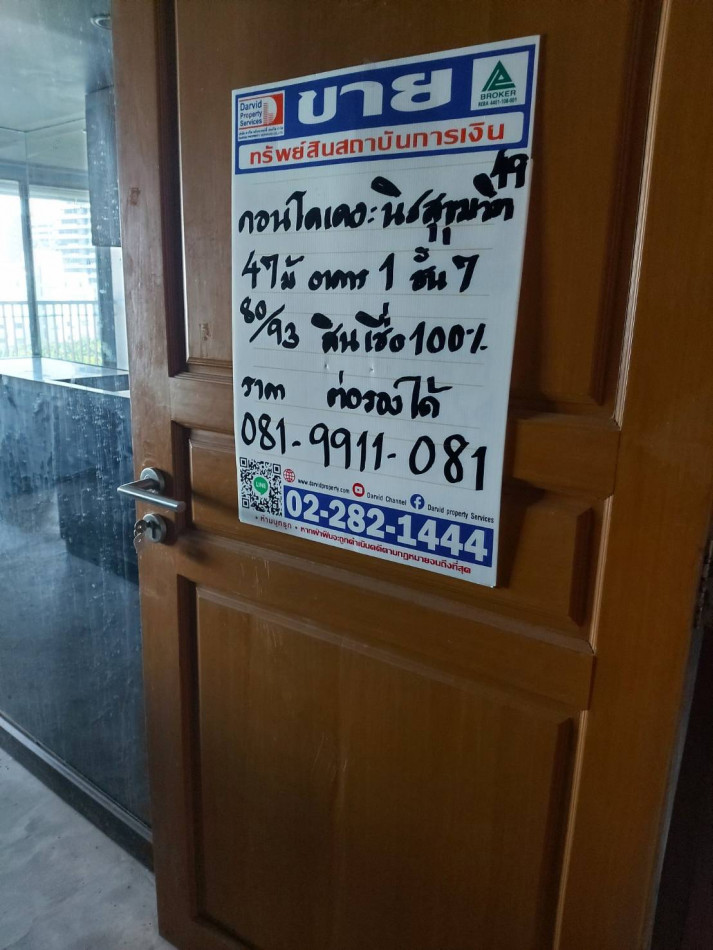 Darvid
Property
Services
ขาย
BROKER
ทรัพย์สินสถาบันการเงิน
คอนโดเดอะนิชสุขุมวิท 49
47 ม้ อาคาร 1 ชั้น 7
80/93 สินเชื่อ 100%
ราคา ต่อรองได้
081-9911-081
LINE
www.darvidproperty.com Darvid Channel Darvid property Services
02-282-1444
• ห้ามบุกรุก • หากฝ่าฝืนจะถูกดำเนินคดีตามกฎหมายจนถึงที่สุด